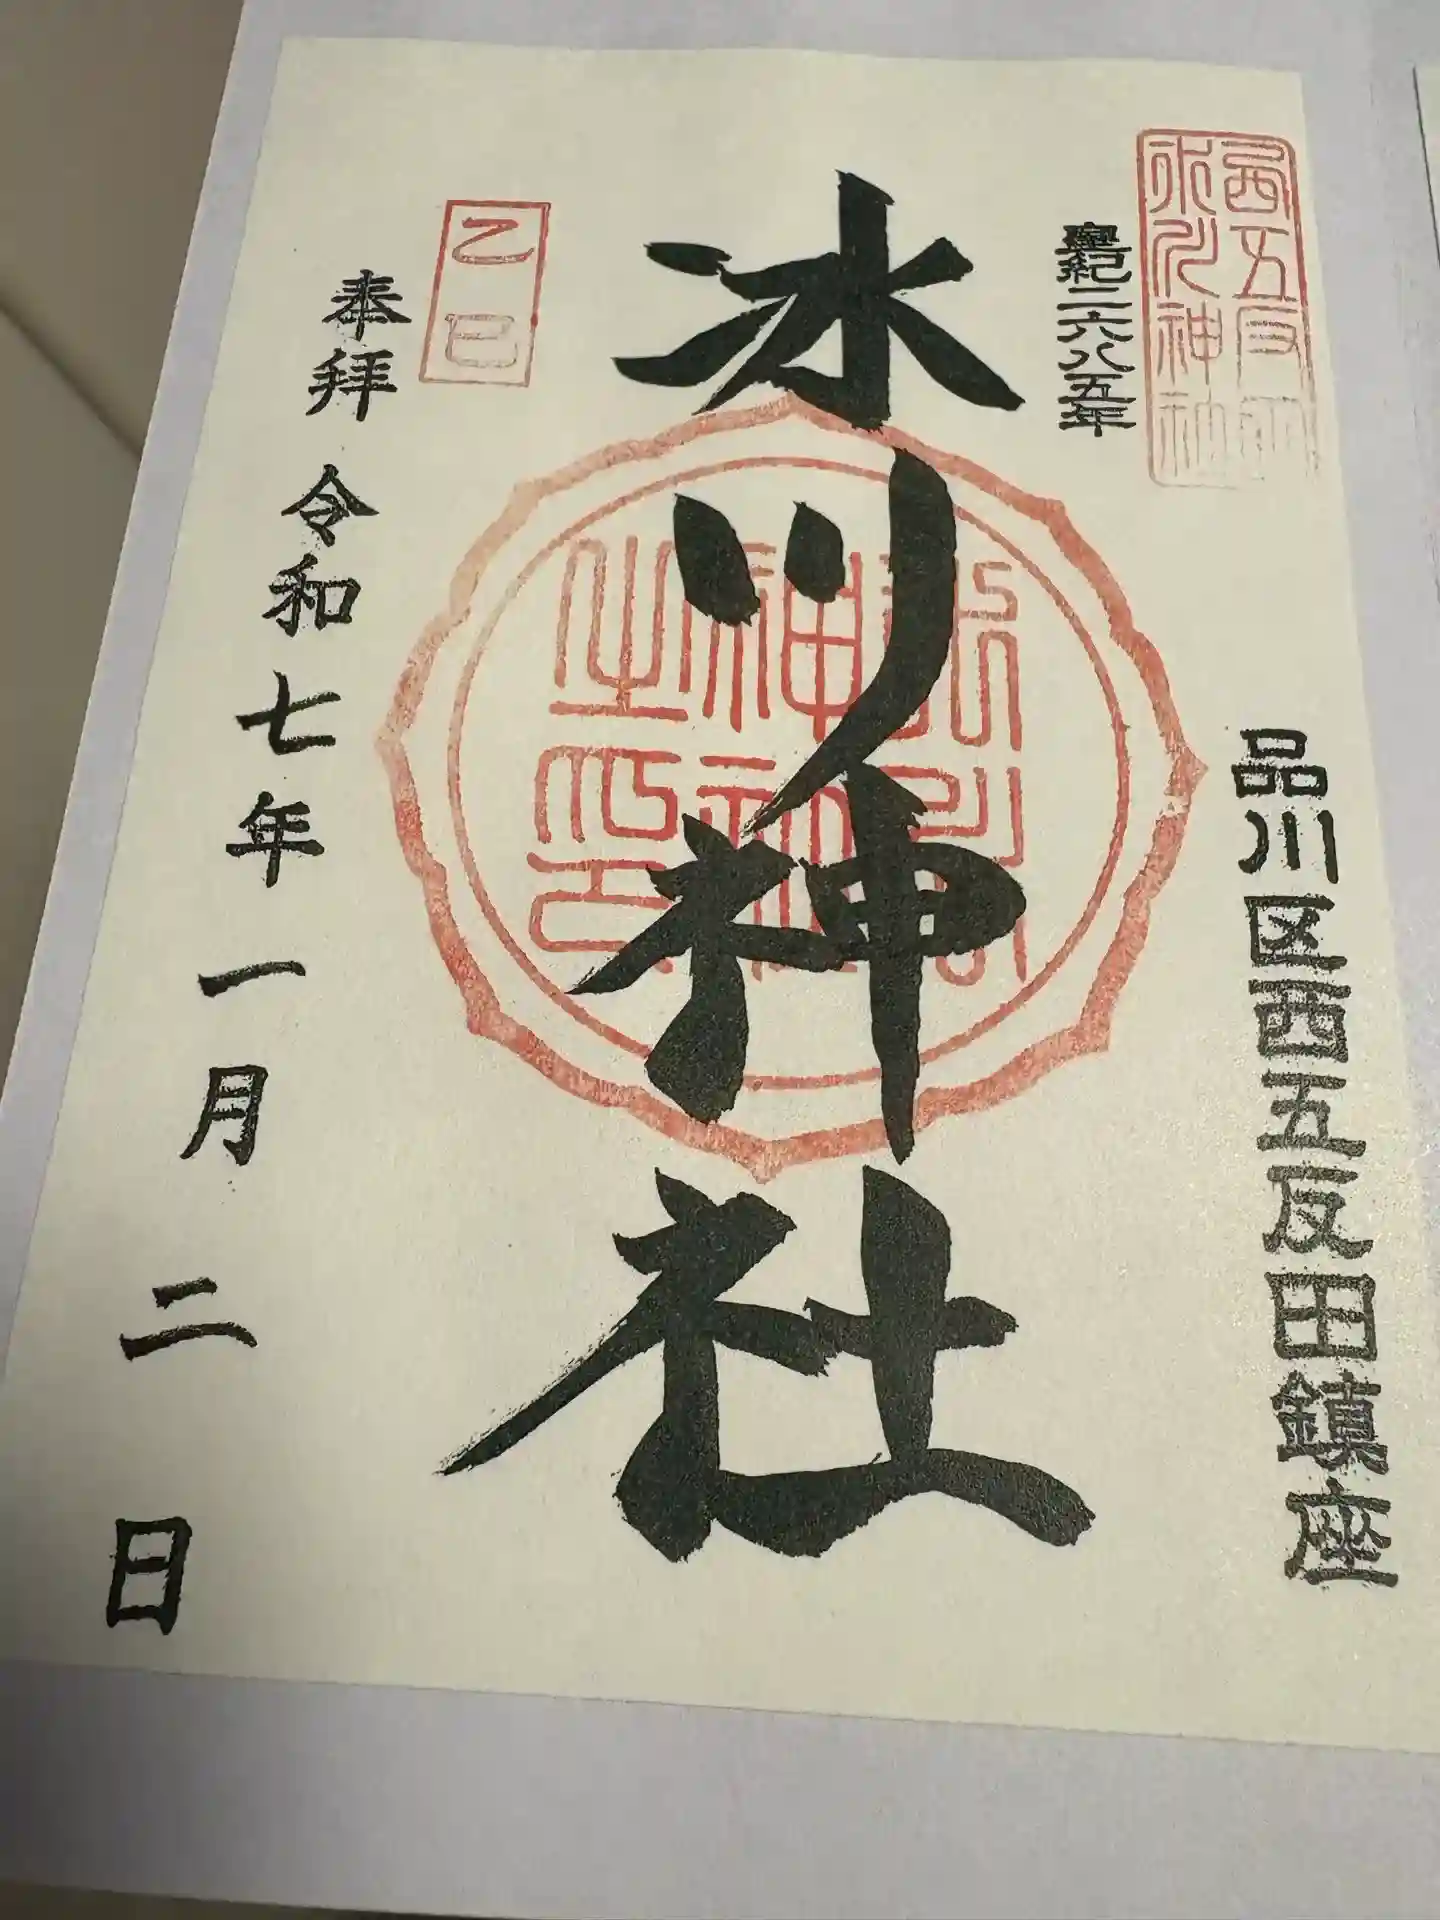 西五反田
氷川神社
皇紀二六八五年
品川区西五反田鎮座
氷川神社
氷川
神社
之印
乙巳
奉拝 令和七年一月二日